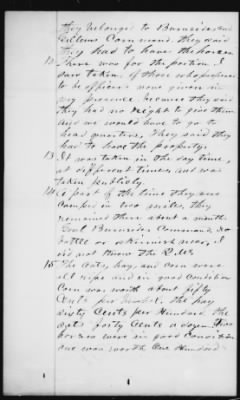 they belonged to Burnside and
Gillems Com man they said
they had to have the horses
12. There was for the portion I
saw taken, of those who professed
to be officers none given in
my presence because they said
they had no right to give them
and we would have to go to
head quarters, They said they
had to have the property.
13. It was taken in the day time,
at different times and was
taken publicly.
14. A part of the time they were
camped in two miles, they
remained there about a month
Genl Burnsides Command, no
battle or skirmish near, I
did not know the
15. The oats, hay, and corn were
all ripe and in good condition
Corn was worth about fifty
Cents per bushel. the hay
sixty Cents per Hundred the
oats forty Cents a dozen. Two
horses were in good condition
one was worth One Hundred
1